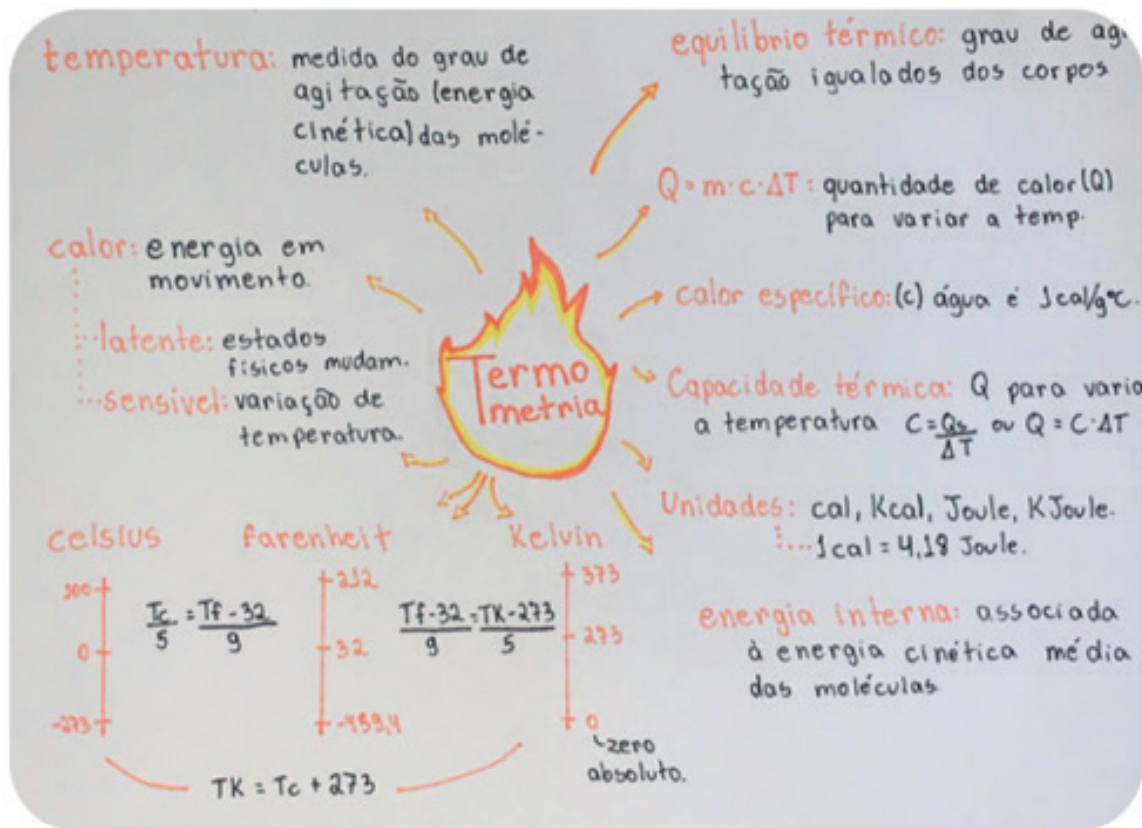 temperatura: medida do grau de
agitação (energia
cinética) das molé-
culas.
calor: energia em
movimento.
latente: estados
físicos mudam.
sensível: variação de
temperatura.
Termo
metria
equilibrio térmico: grau de agi
tação igualados dos corpos
Q = m·c·ΔT: quantidade de calor (Q)
para variar a temp.
calor específico: (c) água é 1cal/g°C.
Capacidade térmica: Q para varia
a temperatura C = Qs/ΔT ou Q = C·ΔT
Unidades: cal, Kcal, Joule, KJoule.
1cal = 4,18 Joule.
energia interna: associada
à energia cinética média
das moléculas
celsius farenheit Kelvin
100 212 373
Tc/5 = Tf-32/9 Tf-32/9 = TK-273/5
0 32 273
-273 -459,4 0
zero
absoluto.
TK = Tc + 273